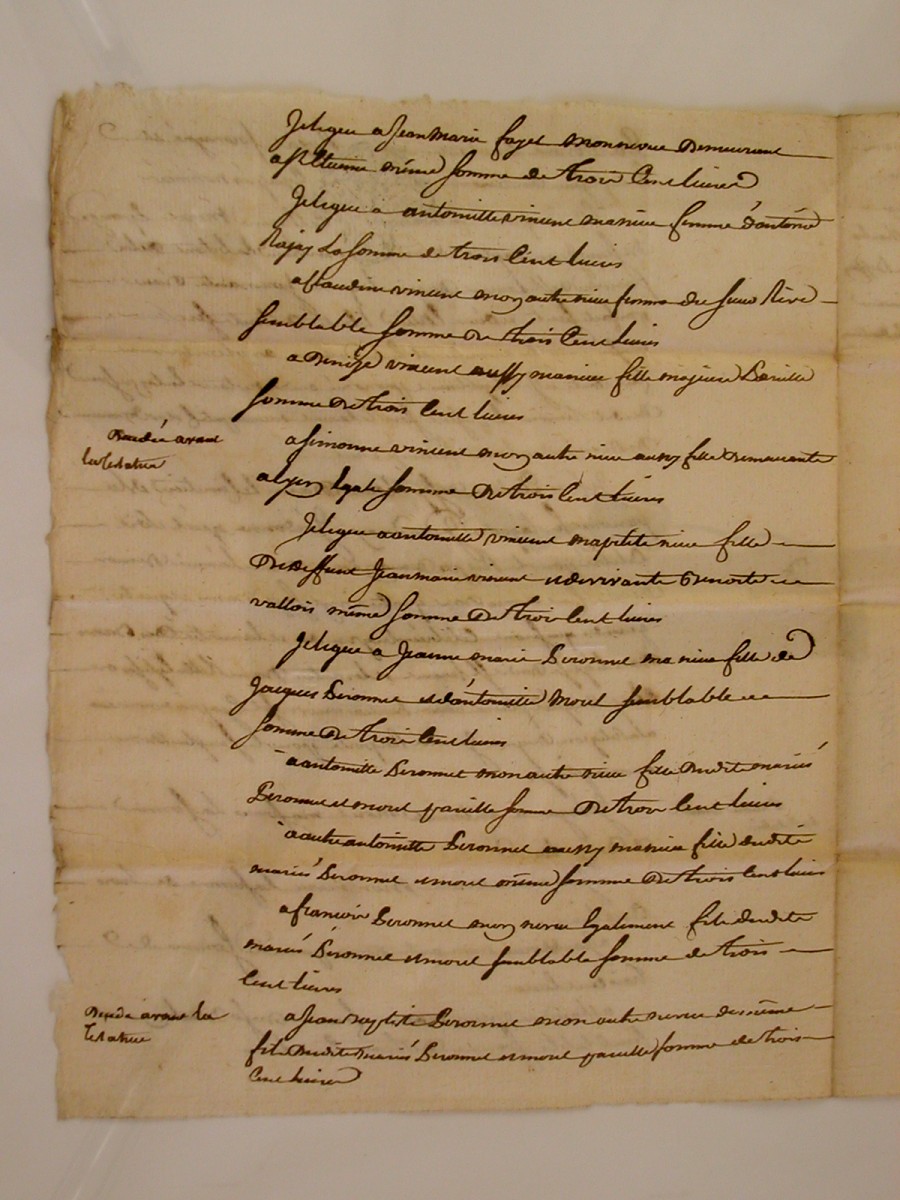 Je legue a Jean Marie fayet mon neveu demeurant
a St Etienne même somme de trois Cent livres
Je legue a antoinette vincent ma niece femme d'antoine
la somme de trois Cent livres
a Claudine vincent mon autre niece femme du sieur Rive
semblable somme de trois Cent livres
a Denise vincent aussy ma niece fille majeure pareille
somme de trois Cent livres
Decedée avant
la testatrice
a Simonne vincent mon autre niece aussy fille demeurante
a lyon Egale somme de trois Cent livres
Je legue a antoinette vincent ma petite niece fille
de deffunt Jean marie vincent et de vivante Benoite
vallois même somme de trois Cent livres
Je legue a Jeanne marie Peronnet ma niece fille de
Jacques Peronnet et d'antoinette Morel semblable
somme de trois Cent livres
a antoinette Peronnet mon autre niece fille dudit mariés
Peronnet et morel pareille somme de trois Cent livres
a autre antoinette Peronnet aussy ma niece fille dudits
mariés Peronnet et morel même somme de trois Cent livres
a francois Peronnet mon neveu Egalement fils dudits
mariés Peronnet et morel semblable somme de trois
Cent livres
Decedé avant la
testatrice
a Jean Baptiste Peronnet mon autre neveu de même
fils dudits mariés Peronnet et morel pareille somme de trois
Cent livres